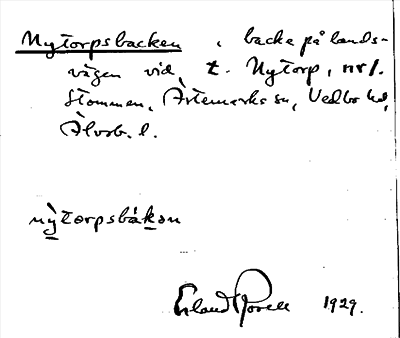 Nytorpsbacken, backe på lands-
vägen vid t. Nytorp, nr 1.
Stommen, Ärtemarks sn, Vedbo hd,
Älvsb. l.
nỳtorpsbákən
Erland Rosell 1929.